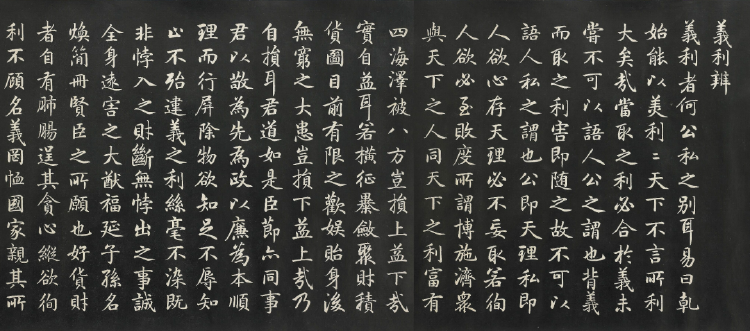 義利辨
義利者何公私之別耳易曰乾
始能以美利〻天下不言所利
大矣哉當取之利必合於義未
嘗不可以語人公之謂也背義
而取之利害即随之故不可以
語人私之謂也公即天理私即
人欲心存天理必不妄取若徇
人欲必至敗度所謂博施濟眾
與天下之人同天下之利富有
四海澤被八方豈損上益下哉
實自益耳若橫征暴斂聚財積
貨圖目前有限之歡娛貽身後
無窮之大患豈損下益上哉乃
自損耳君道如是臣節亦同事
君以敬為先為政以廉為本順
理而行屏除物欲知足不辱知
止不殆違義之利絲毫不染既
非悖入之財斷無悖出之事誠
全身遠害之大猷福延子孫名
煥簡冊賢臣之所願也好貨財
者自有肺腸逞其貪心縱欲徇
利不顧名義罔恤國家親其所